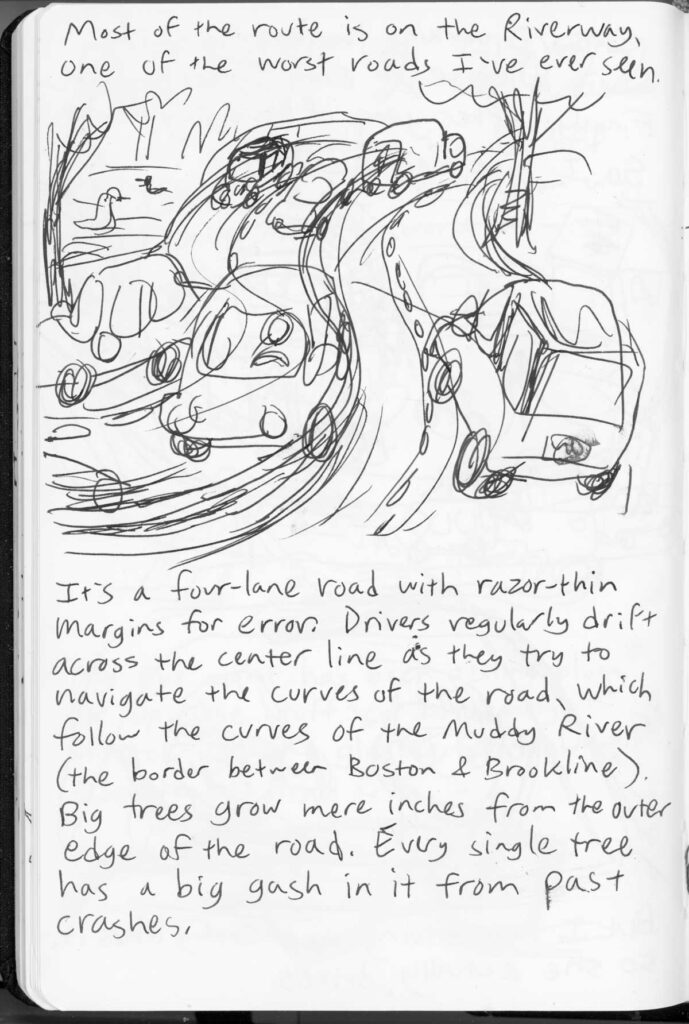 Most of the route is on the Riverway,
one of the worst roads I've ever seen.
It's a four-lane road with razor-thin
margins for error. Drivers regularly drift
across the center line as they try to
navigate the curves of the road, which
follow the curves of the Muddy River
(the border between Boston & Brookline).
Big trees grow mere inches from the outer
edge of the road. Every single tree
has a big gash in it from past
crashes.